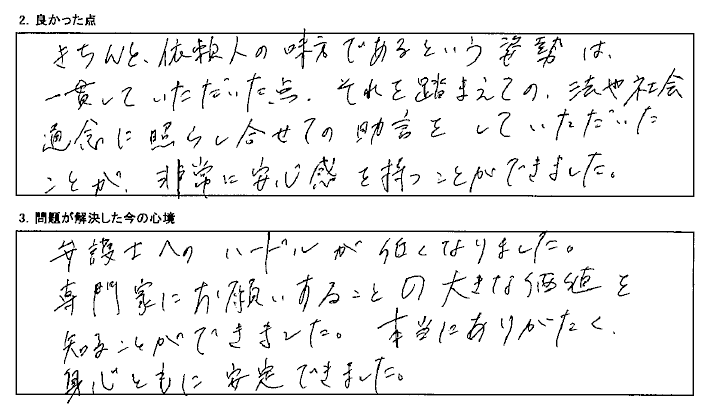 2. 良かった点
きちんと、依頼人の味方であるという姿勢は、
一貫していただいた点、それを踏まえての、法や社会
通念に照らし合せての助言をしていただいた
ことが、非常に安心感を持つことができました。
3. 問題が解決した今の心境
弁護士へのハードルが低くなりました。
専門家にお願いすることの大きな価値を
知ることができました。本当にありがたく、
身心ともに安定できました。